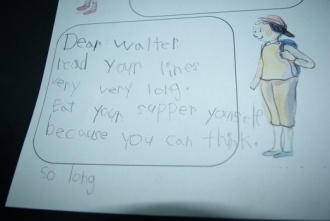 Dear Walter
read your lines
very very long.
Eat your supper yourself
because you can think.
so long